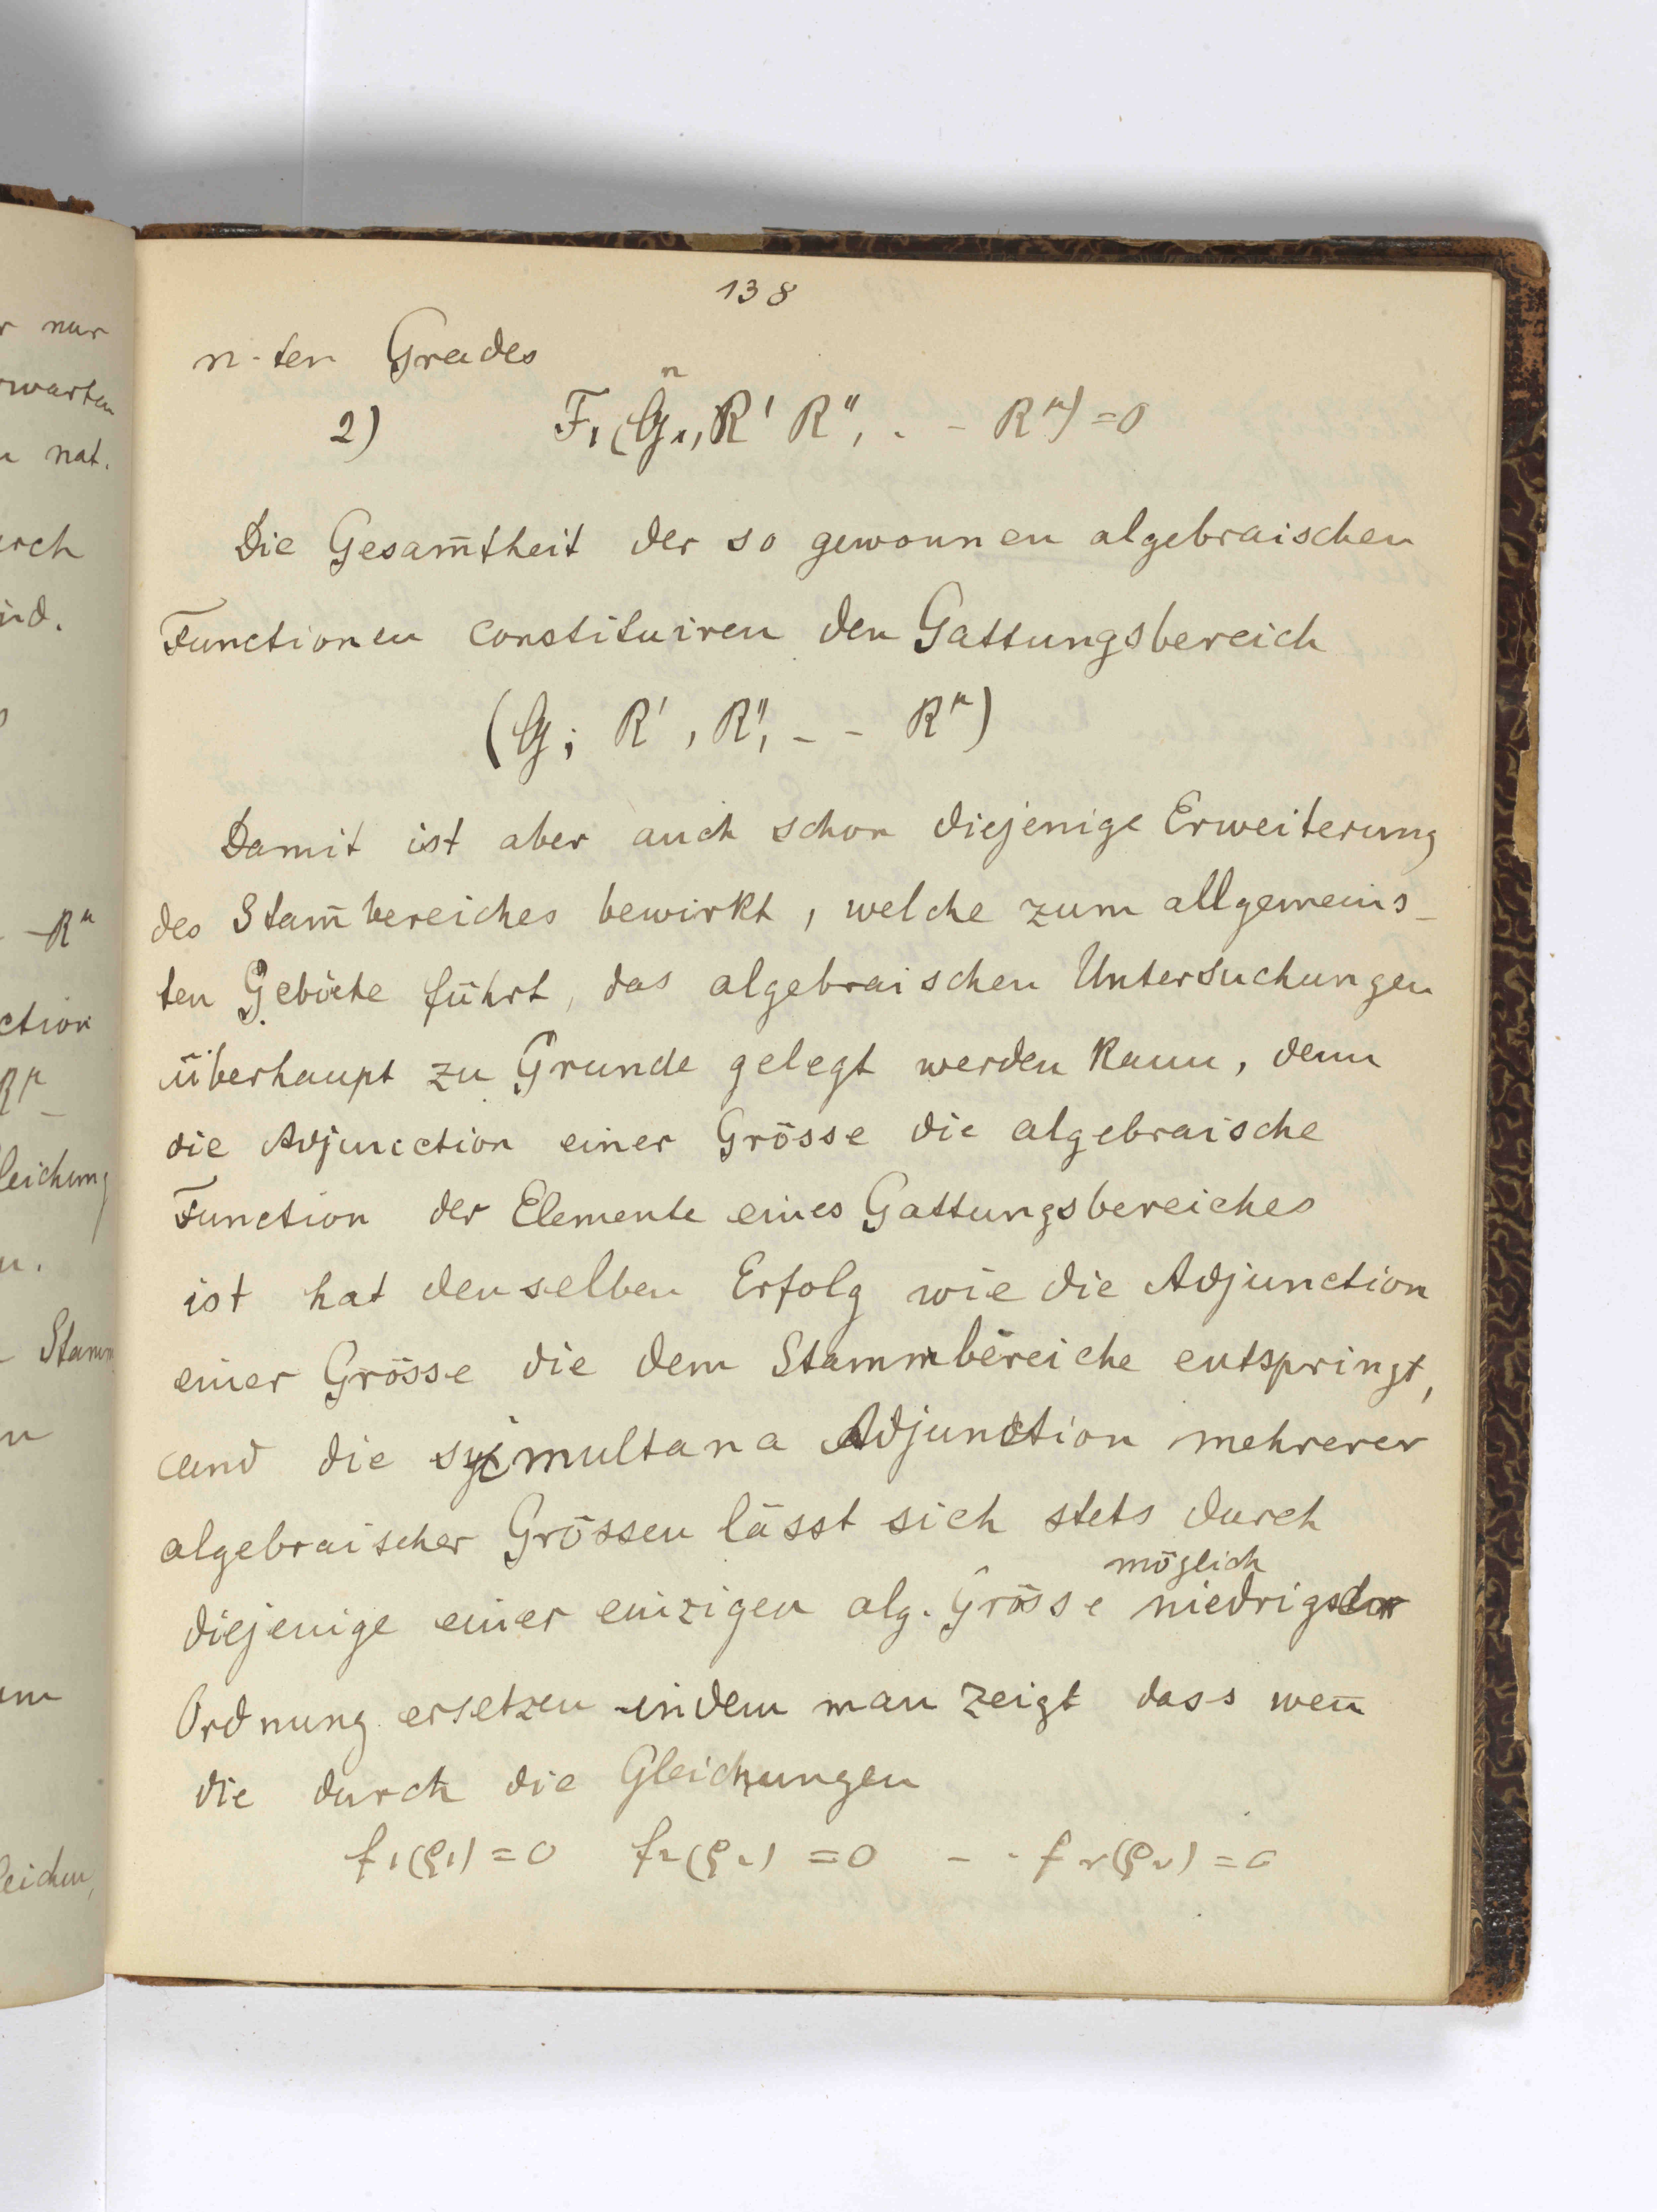 138
n-ten Grades
2) F₁(G₁ⁿ, R' R'', . - Rᵘ) = 0
Die Gesam̄theit der so gewonnen algebraischen
Functionen constituiren den Gattungsbereich
(G; R', R'', - - Rᵘ)
Damit ist aber auch schon diejenige Erweiterung
des Stam̄bereiches bewirkt, welche zum allgemeins-
ten Gebiete führt, das algebraischen Untersuchungen
überhaupt zu Grunde gelegt werden kann, denn
die Adjunction einer Grösse die algebraische
Function der Elemente eines Gattungsbereiches
ist hat denselben Erfolg wie die Adjunction
einer Grösse die dem Stammbereiche entspringt,
und die simultana Adjunction mehrerer
algebraischer Grössen lässt sich stets durch
möglich
diejenige einer einzigen alg. Grösse niedrigster
Ordnung ersetzen indem man zeigt dass wen̄
die durch die Gleichungen
f₁(ρ₁) = 0 f₂(ρ₂) = 0 - - fᵥ(ρᵥ) = 0
r nur
rwarten
nat.
urch
ind.
- Rᵘ
ction
leichung
n.
- Stamm
leichen,